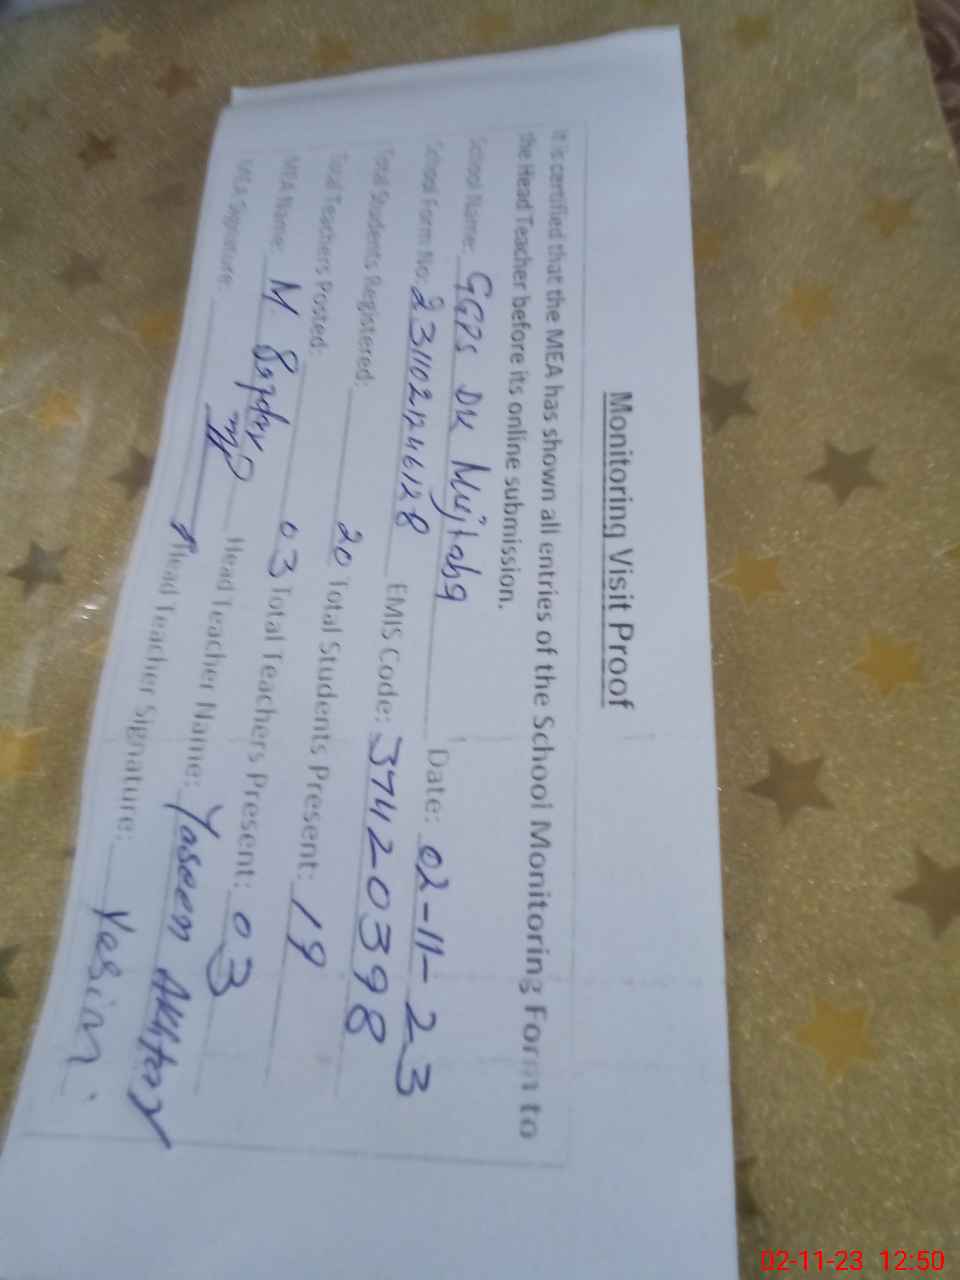 Monitoring Visit Proof
It is certified that the MEA has shown all entries of the School Monitoring Form to
the Head Teacher before its online submission.
School Name: GGPS DK Mujtaba Date: 02-11-23
School Form No: 2311021246128 EMIS Code: 37420398
Total Students Registered: 20 Total Students Present: 19
Total Teachers Posted: 03 Total Teachers Present: 03
MEA Name: M. Head Teacher Name: Yaseen Akhtar
MEA Signature: Head Teacher Signature:
02-11-23 12:50